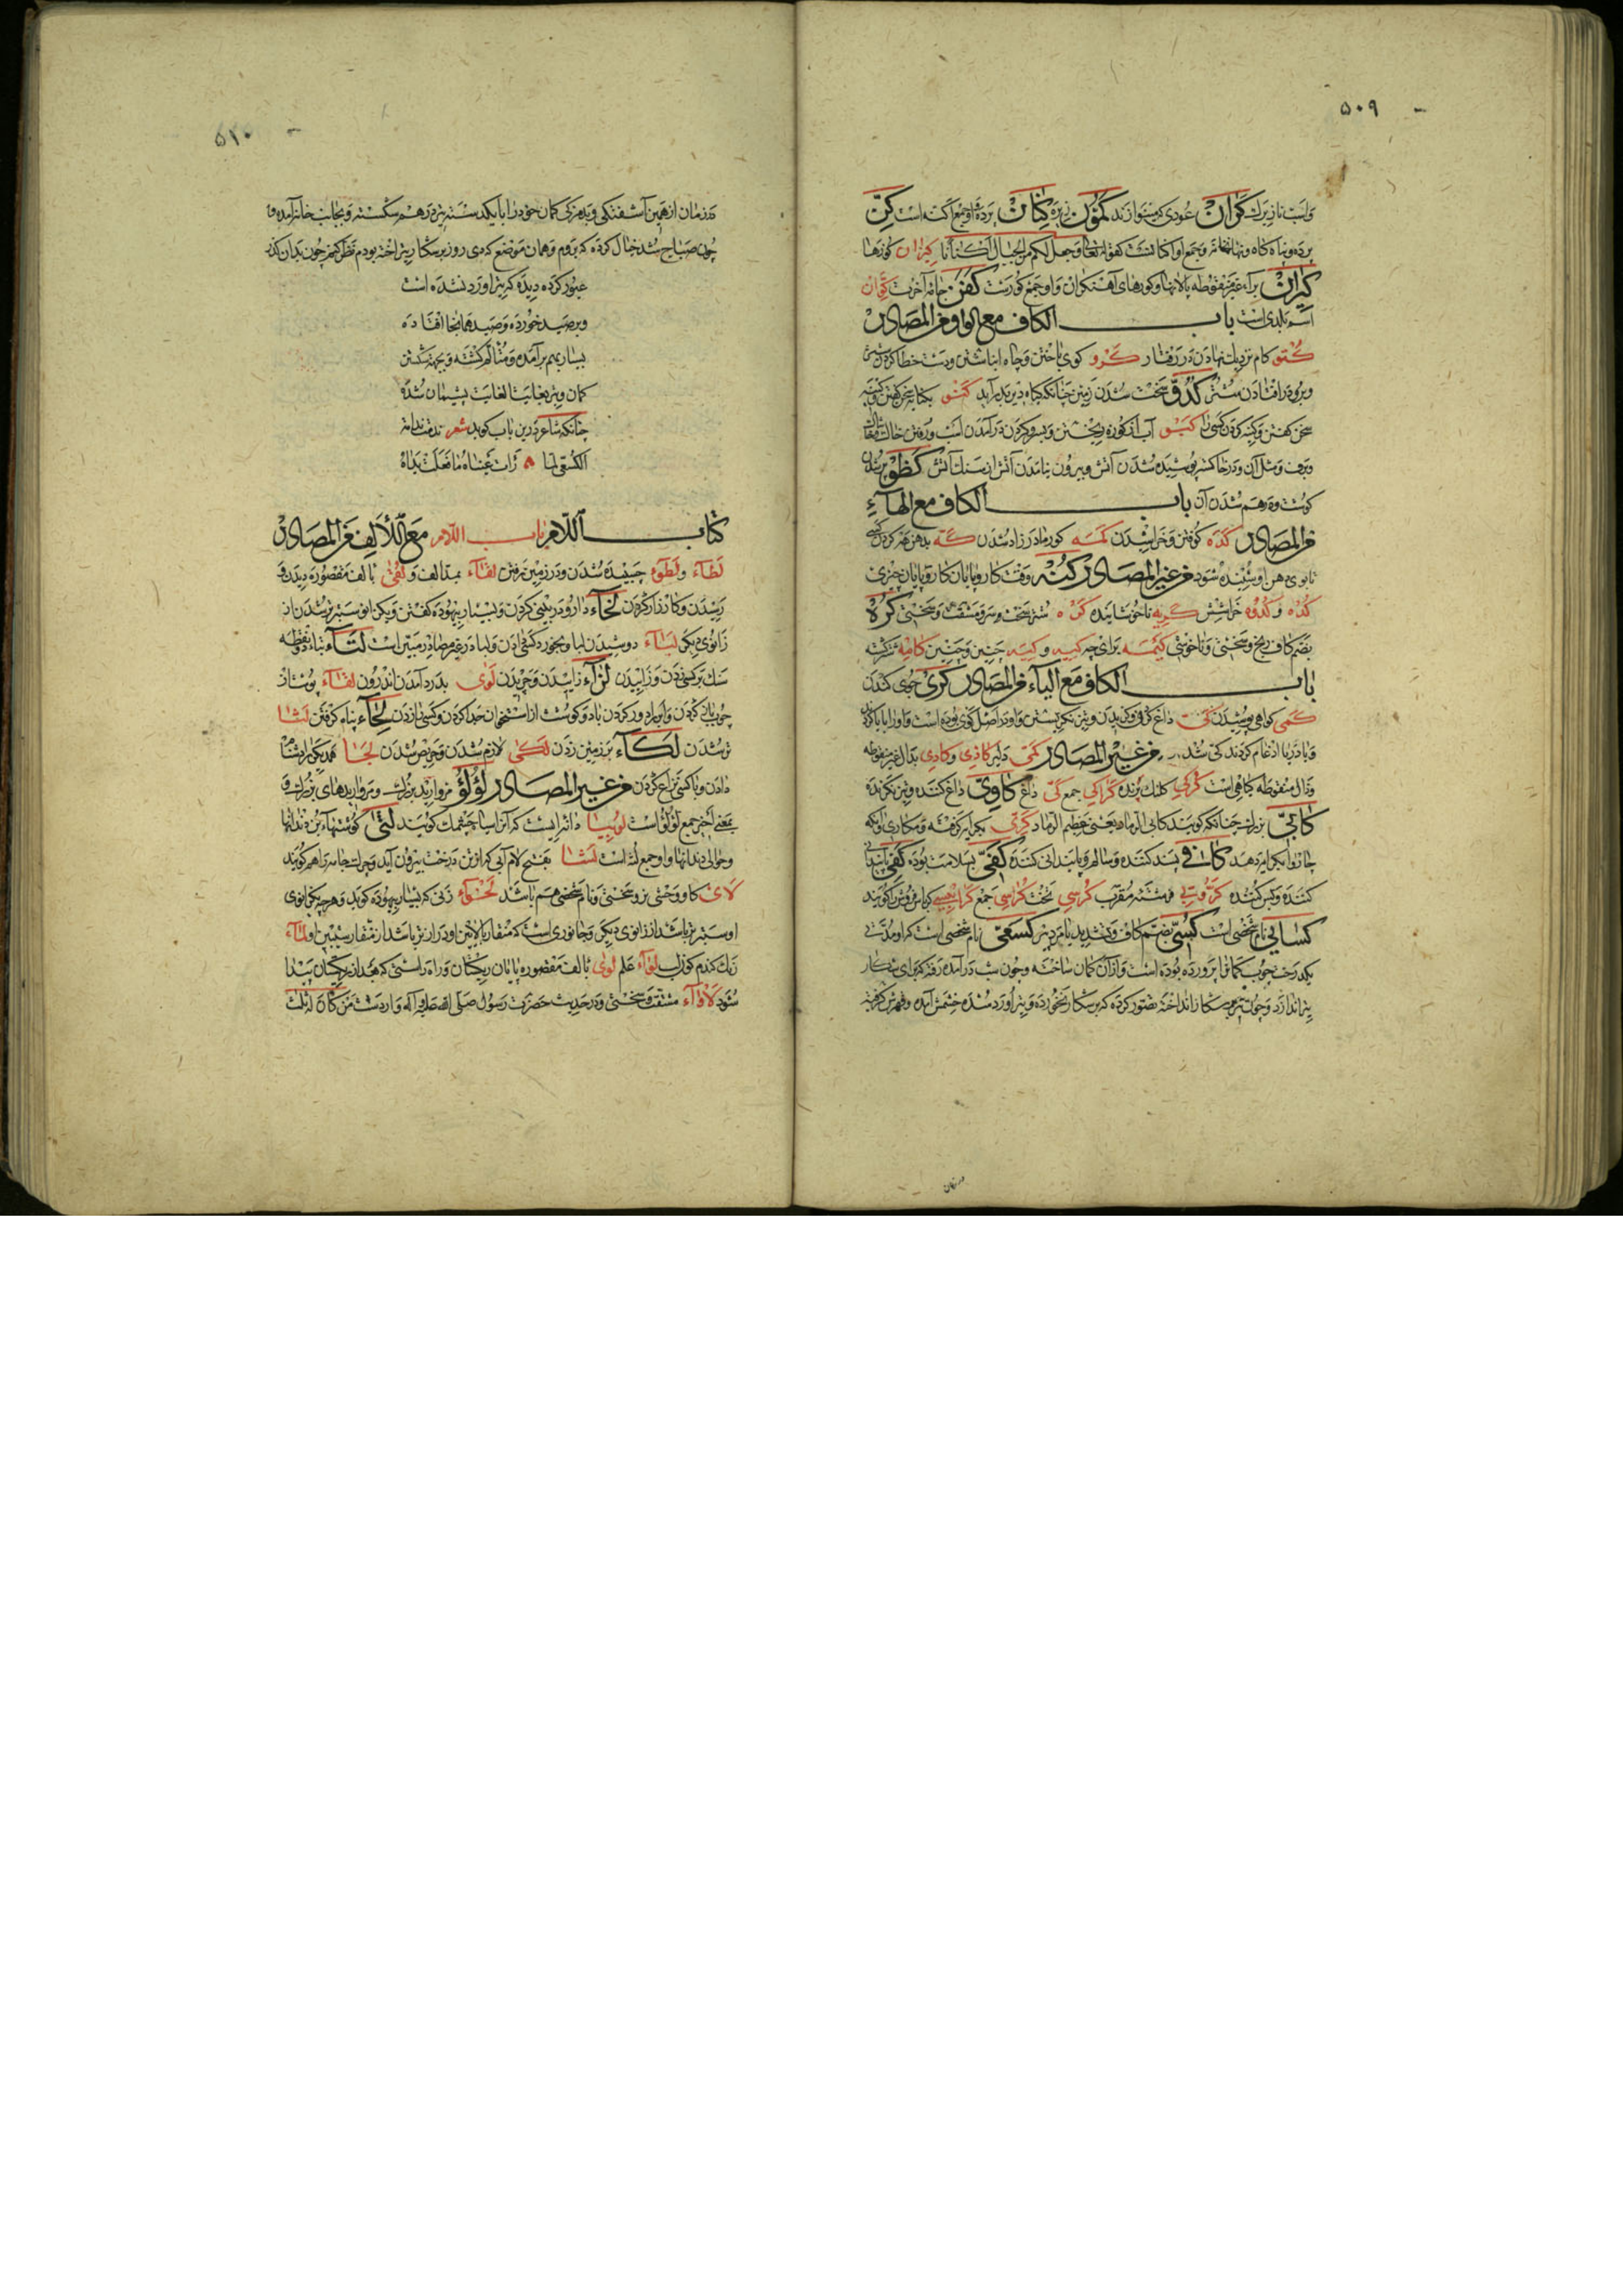 ۵۰۹
کران عودی که بنوازند کنان پرده و او جمع
پرده و پناه کاه و جمع او اکنانست کقوله تعالی و جعل لکم من الجبال اکنانا کیزان کوزها
کیران براء غیر منقوطه پالانها و کورهای آهنگران و او جمع کورست کفن جامه آخرت
اسم بلدی است باب الکاف مع الواو من المصادر
کتو کام نزدیک نهادن در رفتار کرو کوی باختن و چاه انباشتن و
و برو در افتادن ستور کدو سخت شدن زمین چنانکه کیاه دیر بدر آید کنو بکنایه سخن کفتن و کنیه
سخن کفتن و کنیه کردن کسی را کبو آب از کوزه ریختن و برو در آمدن اسب و رفتن خاک
و برف و مثل آن و در خاکستر پوشیده شدن آتش و بیرون نیامدن آتش از سنک آتش کظو پر شدن
کوشت و درهم شدن آن باب الکاف مع الهاء
من المصادر کده کوفتن و خراشیدن کمه کور مادر زاد شدن که
تا بوی دهن او شنیده شود من غیر المصادر کنه وقت کار و پایان کار و پایان چیزی
کده و کدوه خراش کریه ناخوشاینده کره شتر سخت سر و مشقت و سختی کره
بضم کاف رنج و سختی و ناخوشی کیمه برای چه کیه و کیه چنین و چنین
باب الکاف مع الیاء من المصادر کری جوی کندن
کمی کواهی پوشیدن کی داغ کردن و کزیدن و تیز نکریستن و او در اصل کوی بوده است و او را یا کردن
و یا در یا ادغام کردند کی شد من غیر المصادر کمی دلیر کاذی و کادی بدال غیر منقوطه
و ذال منقوطه کیاهی است کرکی کلنک پرنده کراکی جمع کی داغ کاوی داغ کننده و تیز نکرنده
کابی بزرک چنانکه کویند کابی الرماد یعنی عظیم الرماد کری بکرایه کرفته و مکاری و آنکه
چاروا بکرایه دهد کافی بسند کننده کفی
کننده و بس کننده کرسی تخت کراسی جمع
کسائی نام شخصی است کسی بضم کاف و تشدید یا کسعی نام شخصی است که او مدتی
یک درخت چوب کمان را پرورده بوده است و از آن کمان ساخته و چون شب در آمده رفته که برای شکار
تیر اندازد و چون تیر بر شکار انداخته تصور کرده که بر شکار نخورده و تیر آورد شده خشمش آمده
در زمان
۵۱۰
در زمان از همین آشفتکی کمان خود را با یکدسته تیر درهم شکسته و بجانب خانه آمده و
چون صباح شد خیال کرده که بروم و همان موضع که دی روز بر شکار تیر انداخته بودم نظر کنم چون بدان کذر
عبور کرده دیده که تیر آورد نشده است
و بر صید خورده و صید همانجا افتاده
بسیار بهم بر آمده و متالم کشته و بجهة شکستن
کمان و تیر بغایت الغایت پشیمان شده
چنانکه شاعر درین باب کوید شعر ندمت ندامة
الکسعی لما رأت عیناه ما فعلت یداه
کتاب اللام باب اللام مع الألف من المصادر
لطاء و لطوء چسبیده شدن و در زمین رفتن لقاء بمد الف و لقی بالف مقصوره دیدن و
رسیدن و کارزار کردن لخاء دارو در بینی کردن و بسیار بیهوده کفتن و یک زانو ستبرتر شدن از
زانوی دیکر لباء دوشیدن لبا و بخورد کسی دادن و لبا در غیر مصادر مبین است لتاء بتاء دو نقطه
سنک بر کسی زدن و زاییدن لزاء زاییدن و چریدن لوی بدرد آمدن اندرون لفاء پوست از
چوب باز کردن و ابر را دور کردن باد و کوشت از استخوان جدا کردن و کسی را زدن لجاء پناه کرفتن لثا
تر شدن لکاء بر زمین زدن لکی ملازم شدن و حریص شدن لحا همدیکر را دشنام
دادن و با کسی نزاع کردن من غیر المصادر لؤلؤ مروارید بزرک و مرواریدهای بزرک و
بمعنی آخر جمع لؤلؤة است لوبیا دانه ایست که آنرا سیاه چشمک کویند لثی کوشتهاء بن دندانها
و حوالی دندانها و او جمع لثه است لثا بفتح لام آبی که از تن درخت بیرون آید و چرک جامه را هم کویند
لأی کاو وحشی نر و سختی و نام شخصی هم باشد لخواء زنی که بسیار بیهوده کوید و هر چه یک زانوی
او ستبرتر باشد از زانوی دیکر و جانوری است که منقار بالایین او درازتر باشد از منقار شیبین او لماء
زنک کندم کون لب لواء علم لوی بالف مقصوره پایان ریکستان و راه راستی که بعد از ریکستان پیدا
شود لأواء مشقت و سختی و در حدیث حضرت رسول صلی الله علیه و آله وارد ست من کان له ثلث